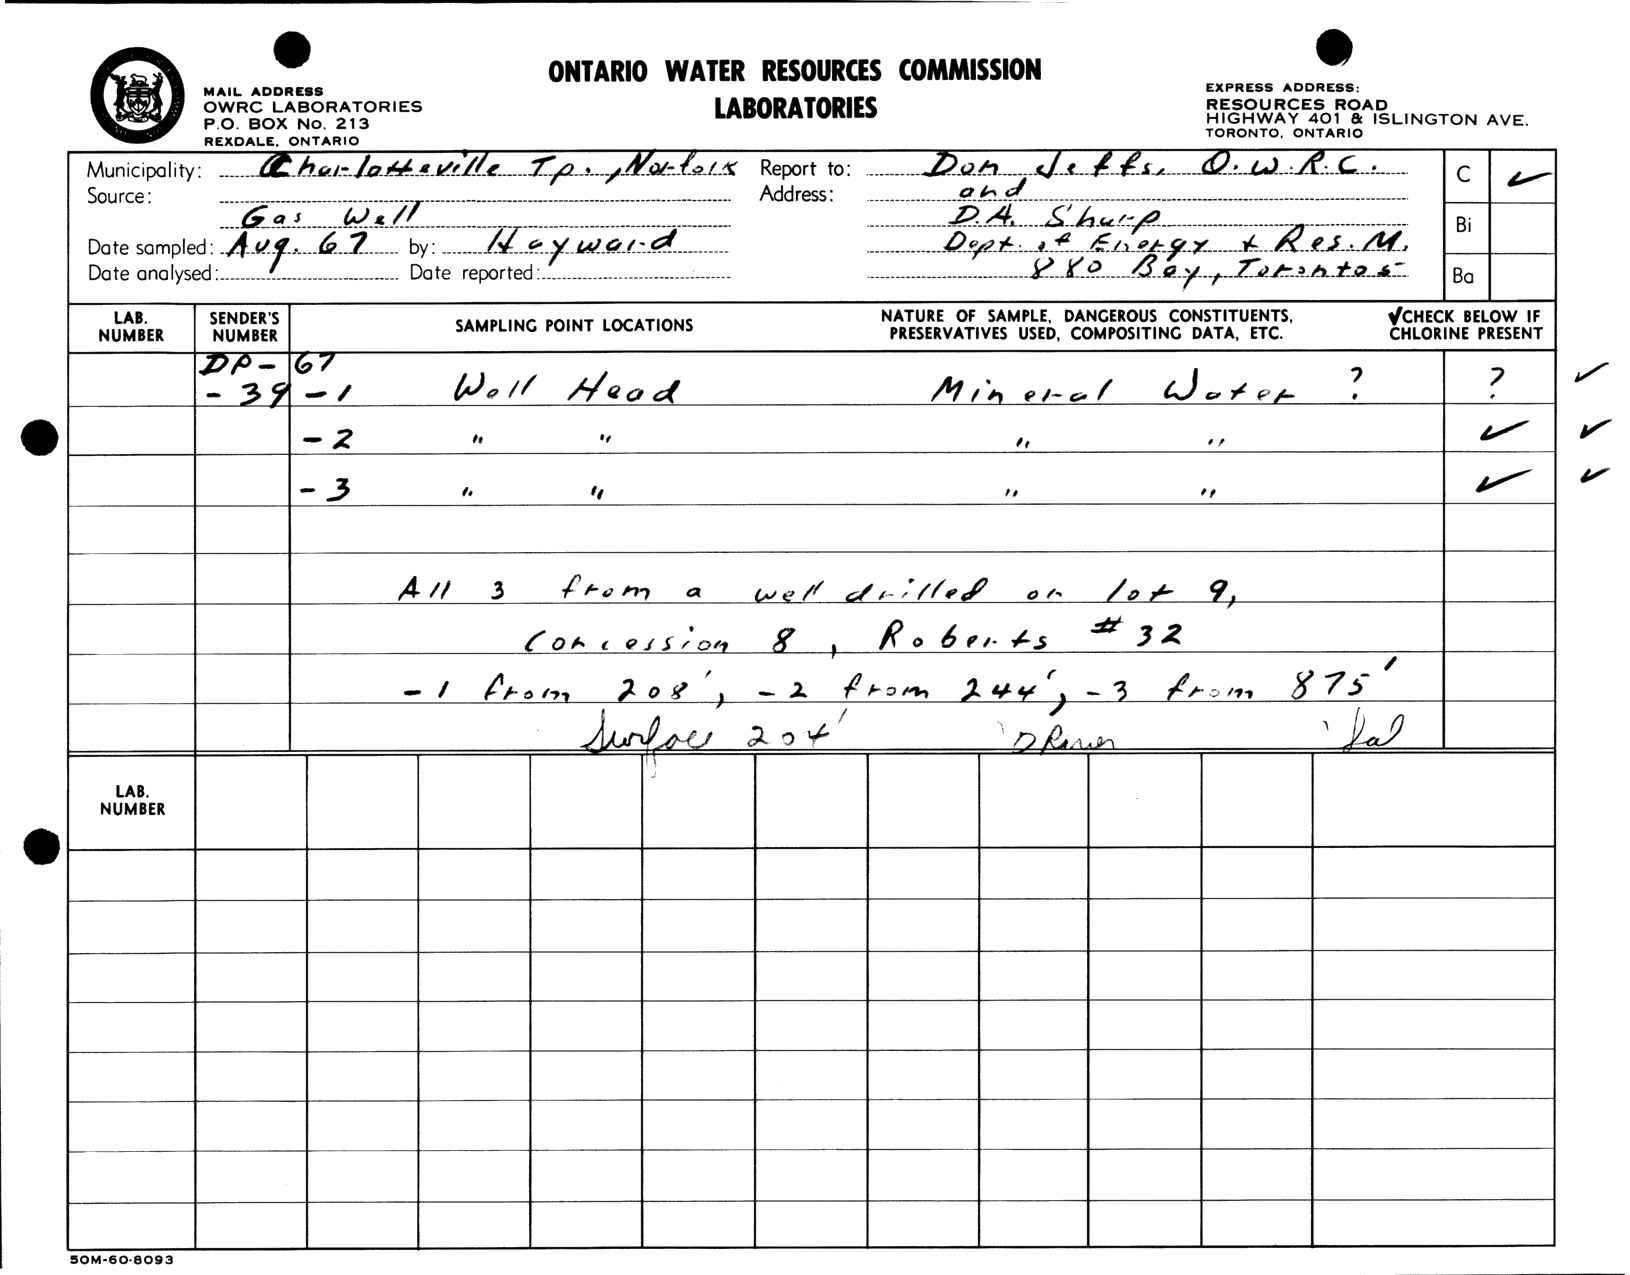 ONTARIO WATER RESOURCES COMMISSION
LABORATORIES
MAIL ADDRESS
OWRC LABORATORIES
P.O. BOX No. 213
REXDALE, ONTARIO
EXPRESS ADDRESS:
RESOURCES ROAD
HIGHWAY 401 & ISLINGTON AVE.
TORONTO, ONTARIO
Municipality: Charlotteville Tp., Norfolk
Source:
Gas Well
Date sampled: Aug. 67 by: Hayward
Date analysed: Date reported:
Report to: Don Jeffs, O.W.R.C.
Address: and
D.A. Sharp
Dept. of Energy + Res. M.
880 Bay, Toronto 5
C ✓
Bi
Ba
LAB. NUMBER SENDER'S NUMBER SAMPLING POINT LOCATIONS NATURE OF SAMPLE, DANGEROUS CONSTITUENTS, PRESERVATIVES USED, COMPOSITING DATA, ETC. ✓CHECK BELOW IF CHLORINE PRESENT
DP-67
-39-1 Well Head Mineral Water ? ? ✓
-2 " " " " ✓ ✓
-3 " " " " ✓ ✓
All 3 from a well drilled on lot 9,
Concession 8, Roberts #32
-1 from 208', -2 from 244', -3 from 875'
Surface 204'
LAB. NUMBER
50M-60-8093